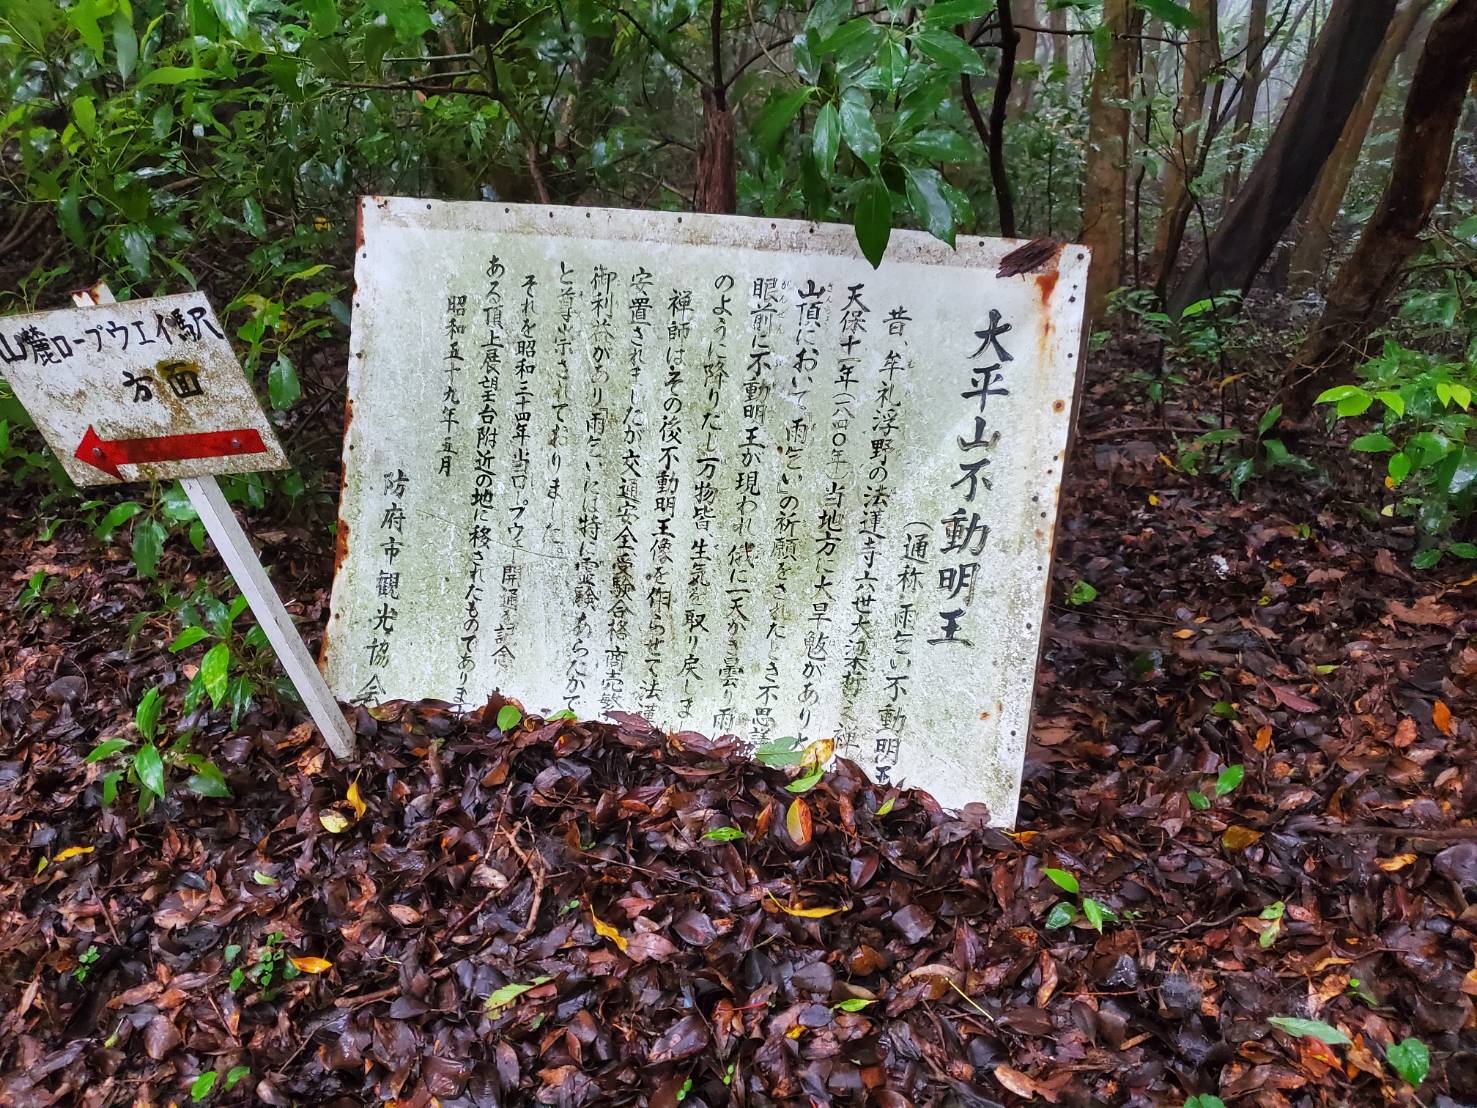 大平山不動明王
(通称雨乞い不動明王
昔、牟礼浮野の法蓮寺六世大梁哲之禅
天保十一年(一八四〇年)当地方に大旱魃がありし
山頂において「雨乞い」の祈願をされたしき不思議
眼前に不動明王が現われ俄に一天かき曇り雨
のように降りたし万物皆生気を取り戻しま
禅師はその後不動明王像を作らせて法蓮
安置されましたが交通安全受験合格商売繁
御利益があり「雨乞い」には特に霊験あらたかで
と尊崇されておりました。
それを昭和三十四年当ロープウェー開通を記念
ある頂上展望台附近の地に移されたものであります
昭和五十九年五月
防府市観光協会
山麓ロープウエイ駅
方面